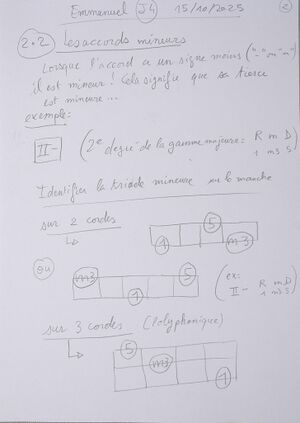 Emmanuel J4 15/10/2025 2
2.2 Les accords mineurs
Lorsque l'accord a un signe moins ("-" ou "m")
il est mineur! Cela signifie que sa tierce
est mineure...
exemple:
II- (2e degré de la gamme majeure: R m D
1 m3 5
Identifier la triade mineure sur le manche
sur 2 cordes
5
1 m3
ou
m3 5
1
(ex: R m D
II- 1 m3 5
sur 3 cordes (Polyphonique)
5
m3
1